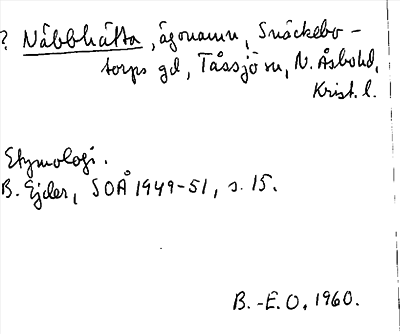 ? Näbbhätta, ägonamn, Snäckebo-
torps gd, Tåssjö sn, N. Åsbohd,
Krist. l.
Etymologi.
B. Ejder, SOÅ 1949-51, s. 15.
B.-E.O. 1960.